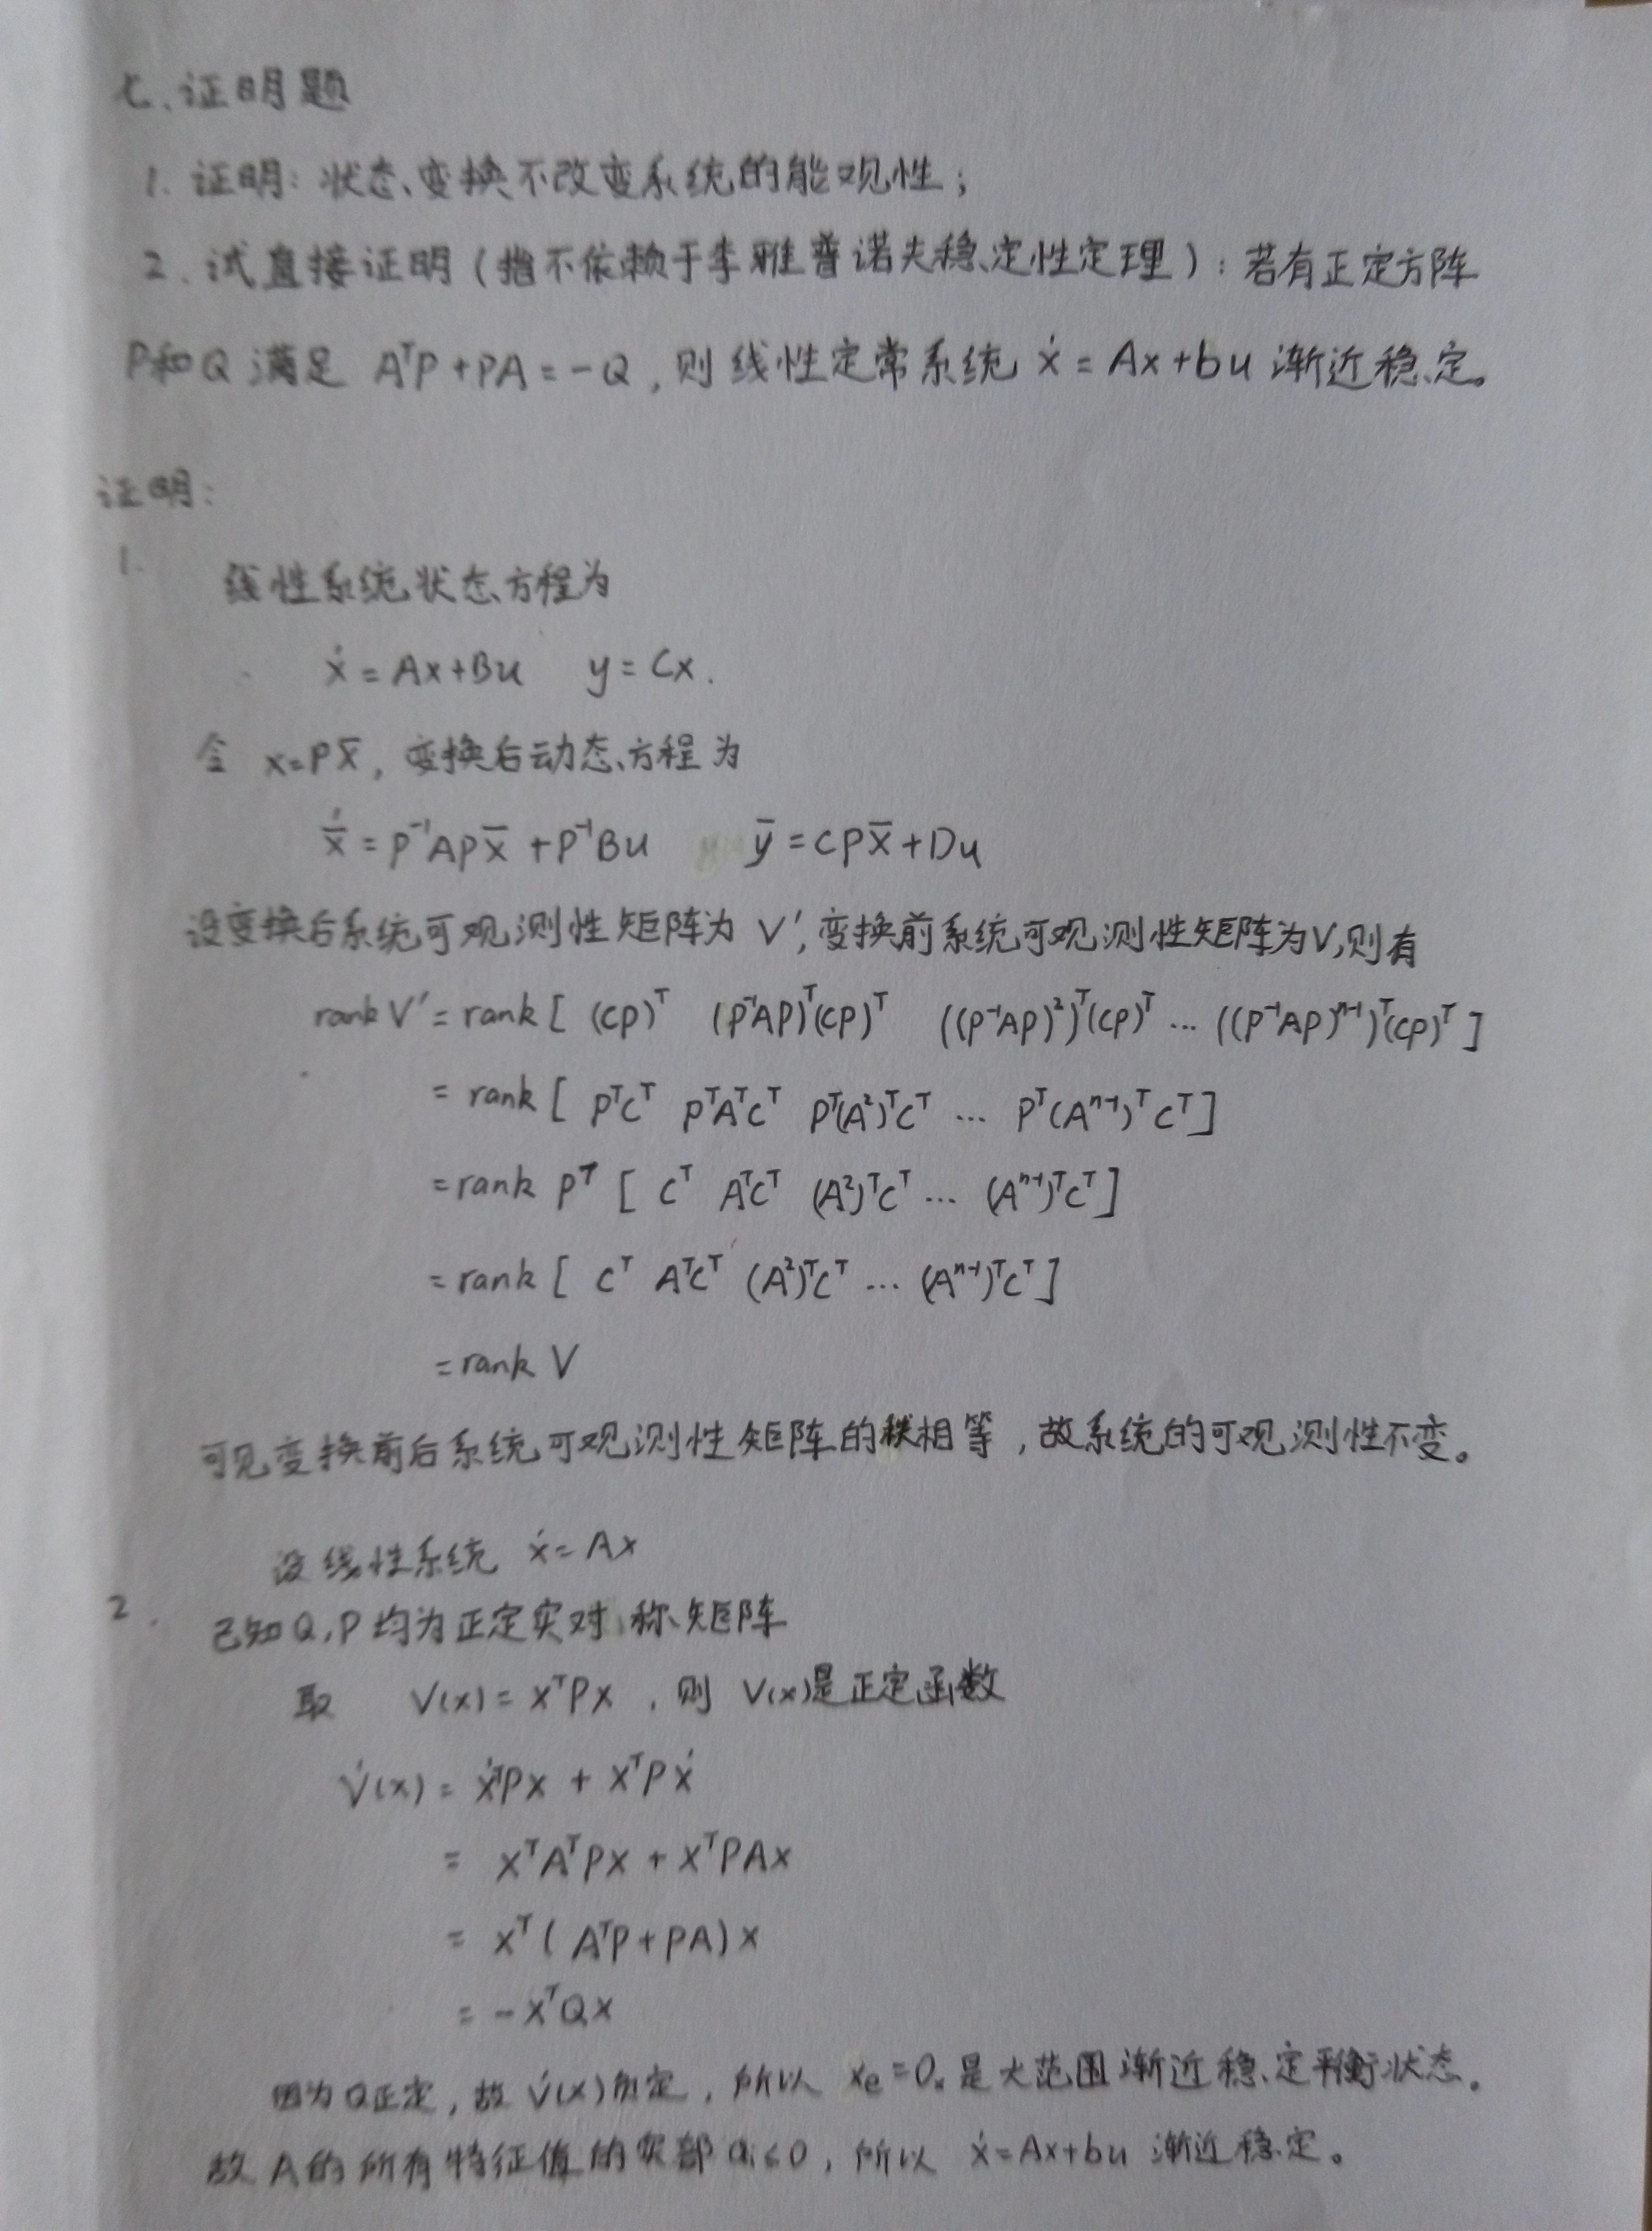 七、证明题
1. 证明：状态变换不改变系统的能观性；
2. 试直接证明（指不依赖于李雅普诺夫稳定性定理）：若有正定方阵
P和Q满足 AᵀP+PA=-Q，则线性定常系统 ẋ=Ax+bu 渐近稳定。
证明：
1.
线性系统状态方程为
ẋ=Ax+Bu y=Cx.
令 x=Px̄，变换后动态方程为
x̄̇=P⁻¹APx̄+P⁻¹Bu ȳ=CPx̄+Du
设变换后系统可观测性矩阵为 V′，变换前系统可观测性矩阵为V，则有
rank V′=rank[ (CP)ᵀ (P⁻¹AP)ᵀ(CP)ᵀ ((P⁻¹AP)²)ᵀ(CP)ᵀ … ((P⁻¹AP)ⁿ⁻¹)ᵀ(CP)ᵀ ]
= rank [ PᵀCᵀ PᵀAᵀCᵀ Pᵀ(A²)ᵀCᵀ … Pᵀ(Aⁿ⁻¹)ᵀCᵀ ]
=rank Pᵀ [ Cᵀ AᵀCᵀ (A²)ᵀCᵀ … (Aⁿ⁻¹)ᵀCᵀ ]
=rank [ Cᵀ AᵀCᵀ (A²)ᵀCᵀ … (Aⁿ⁻¹)ᵀCᵀ ]
=rank V
可见变换前后系统可观测性矩阵的秩相等，故系统的可观测性不变。
设线性系统 ẋ=Ax
2.
已知Q,P均为正定实对称矩阵
取 V(x)=xᵀPx ，则 V(x)是正定函数
V̇(x)= ẋᵀPx + xᵀPẋ
= xᵀAᵀPx + xᵀPAx
= xᵀ(AᵀP+PA)x
= -xᵀQx
因为Q正定，故 V̇(x)负定，所以 xe=0 是大范围渐近稳定平衡状态。
故A的所有特征值的实部 <0，所以 ẋ=Ax+bu 渐近稳定。